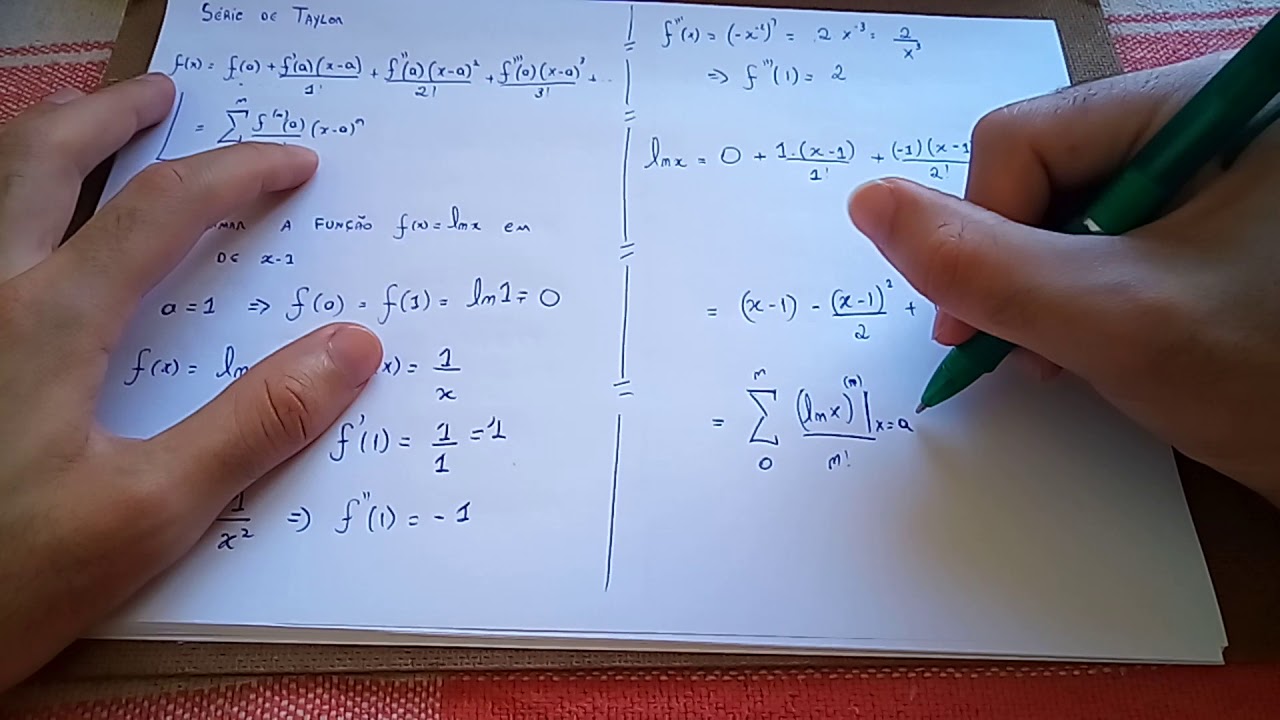 SÉRIE DE TAYLOR
f(x) = f(a) + f'(a)(x-a)/1! + f''(a)(x-a)²/2! + f'''(a)(x-a)³/3! + ...
= Σ^n f^(n)(a) (x-a)^n
A FUNÇÃO f(x) = lnx EM
DE x-1
a = 1 ⇒ f(a) = f(1) = ln1 = 0
f(x) = ln x) = 1/x
f'(1) = 1/1 = 1
1/x² ⇒ f''(1) = -1
f'''(x) = (-x⁻²)' = 2x⁻³ = 2/x³
⇒ f'''(1) = 2
lnx = 0 + 1·(x-1)/1! + (-1)(x-1/2!
= (x-1) - (x-1)²/2 +
= Σ_0^n (lnx)^(n)|x=a / n!